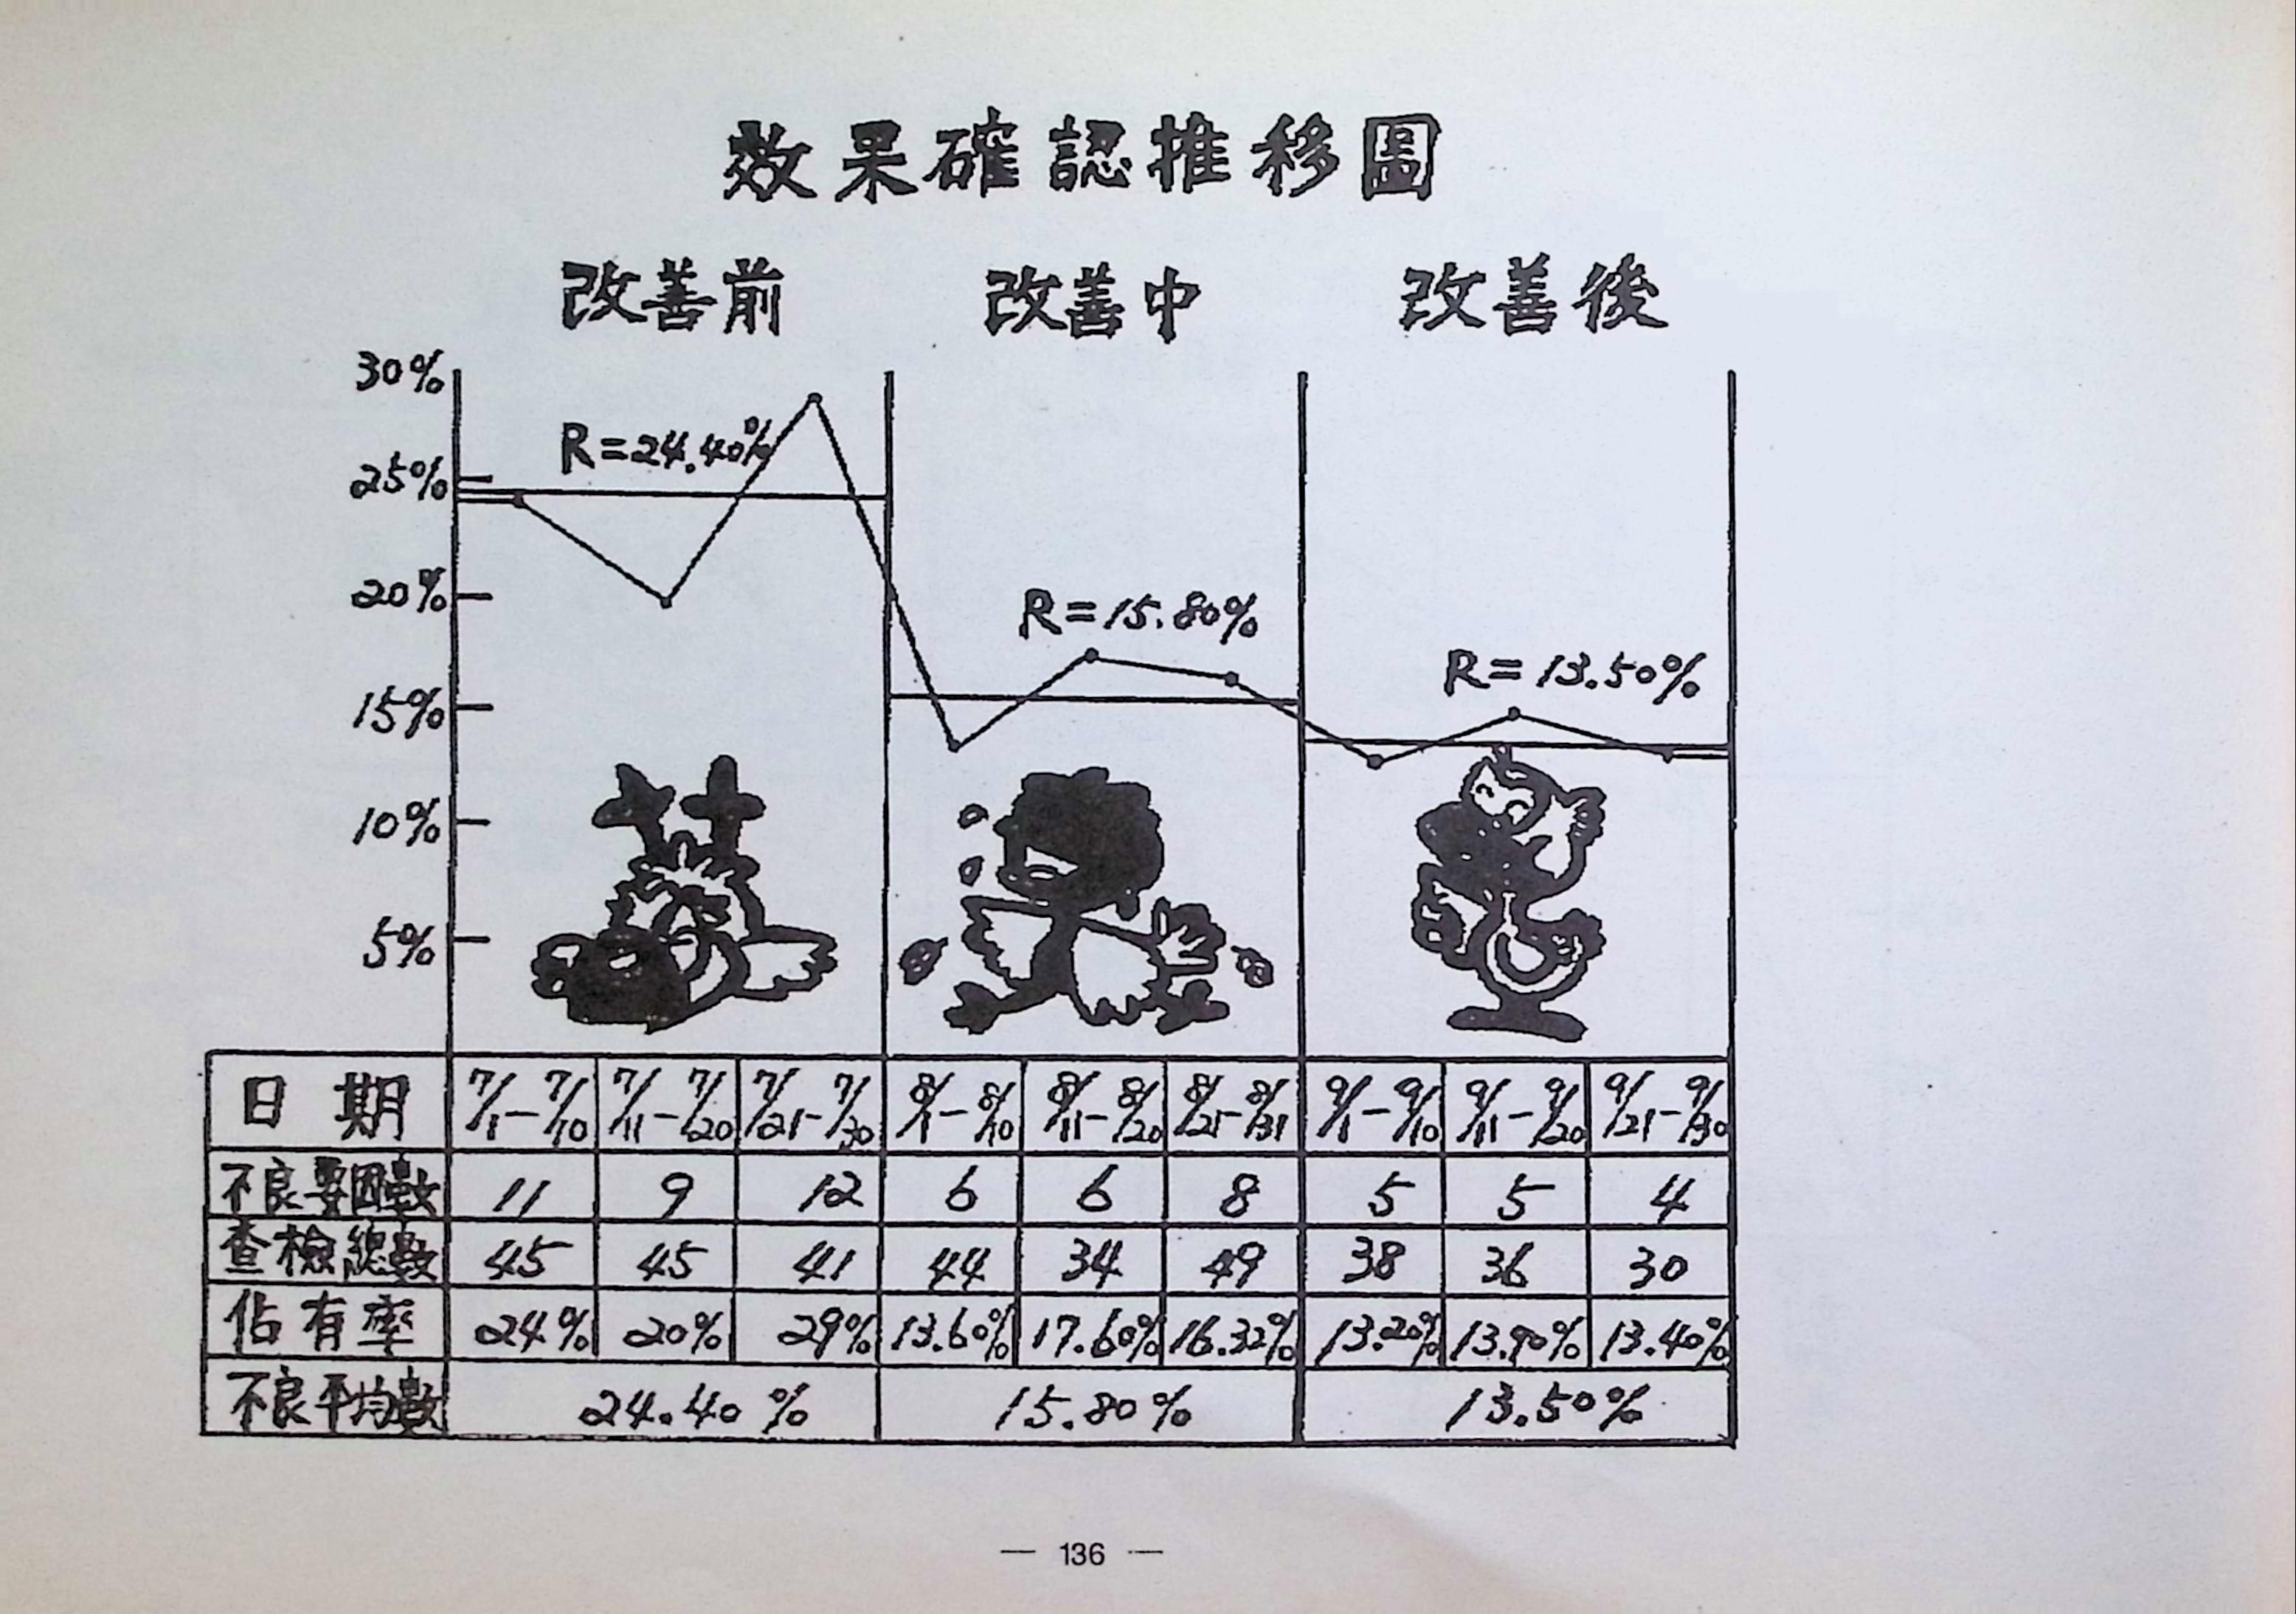 效果確認推移圖
改善前 改善中 改善後
30%
R=24.40%
25%
20%
R=15.80%
R=13.50%
15%
10%
5%
日期 7/1-7/10 7/11-7/20 7/21-7/30 8/1-8/10 8/11-8/20 8/21-8/31 9/1-9/10 9/11-9/20 9/21-9/30
不良要因數 11 9 12 6 6 8 5 5 4
查檢總數 45 45 41 44 34 49 38 36 30
佔有率 24% 20% 29% 13.60% 17.60% 16.32% 13.20% 13.90% 13.40%
不良平均數 24.40% 15.80% 13.50%
— 136 —